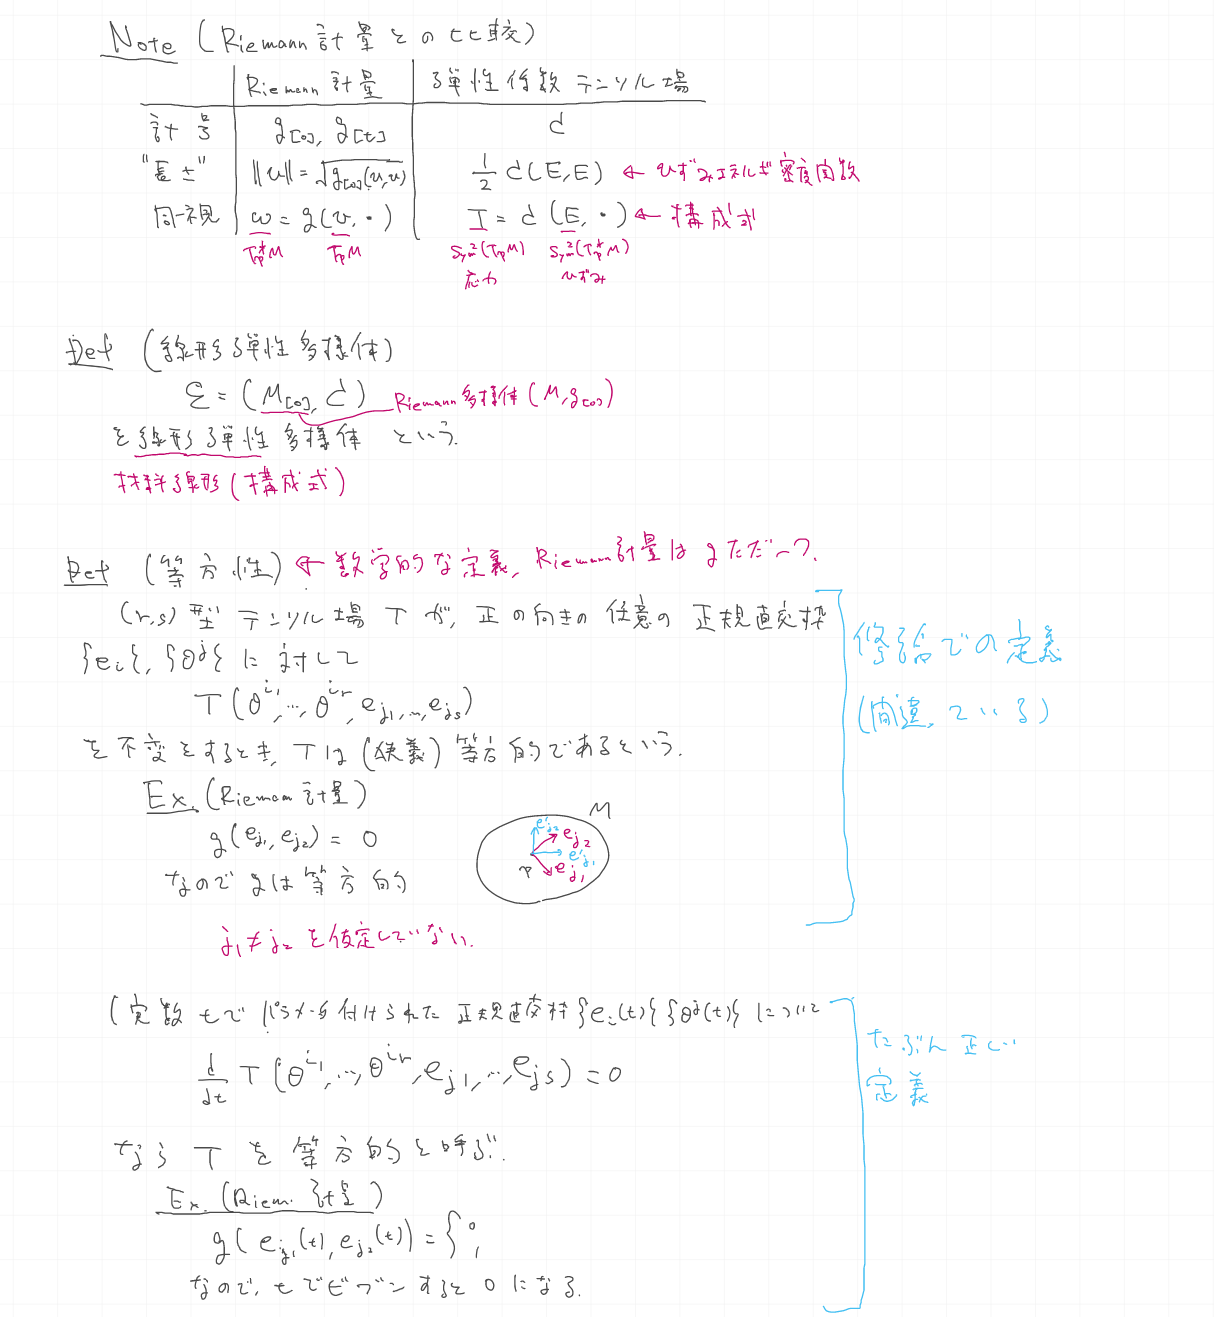 Note (Riemann計量との比較)
Riemann計量 弾性係数テンソル場
計号 g[0], g[t] C
"長さ" ||v|| = √g[0](v,v) 1/2 C(E,E) ← ひずみエネルギ密度関数
同一視 ω = g(v, •) T = C(E, •) ← 構成式
Tp*M TpM Sym²(TpM) Sym²(Tp*M)
応力 ひずみ
Def (線形弾性多様体)
ℰ = (M[0], C) Riemann多様体(M, g[0])
を線形弾性多様体という.
材料線形(構成式)
Def (等方性) ← 数学的な定義, Riemann計量はgただ一つ.
(r,s)型テンソル場Tが, 正の向きの任意の正規直交枠
{ei}, {θj}に対して
T(θi1, ..., θir, ej1, ..., ejs)
を不変とするとき, Tは(狭義)等方的であるという.
修論での定義
(間違っている)
Ex. (Riemann計量)
g(ej1, ej2) = 0
なのでgは等方的
M
e'j2
ej2
e'j1
ej1
p
j1≠j2を仮定していない.
(実数tでパラメータ付けられた正規直交枠{ei(t)}{θj(t)}について
d/dt T(θi1, ..., θir, ej1, ..., ejs) = 0
ならTを等方的と呼ぶ.
たぶん正しい
定義
Ex. (Riem. 計量)
g(ej1(t), ej2(t)) = { 0, 1
なので, tでビブンすると0になる.